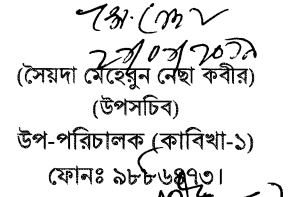 (সৈয়দা মেহেরুন নেছা কবীর)
(উপসচিব)
উপ-পরিচালক (কাবিখা-১)
ফোনঃ ৯৮৮৬৪৭৩।